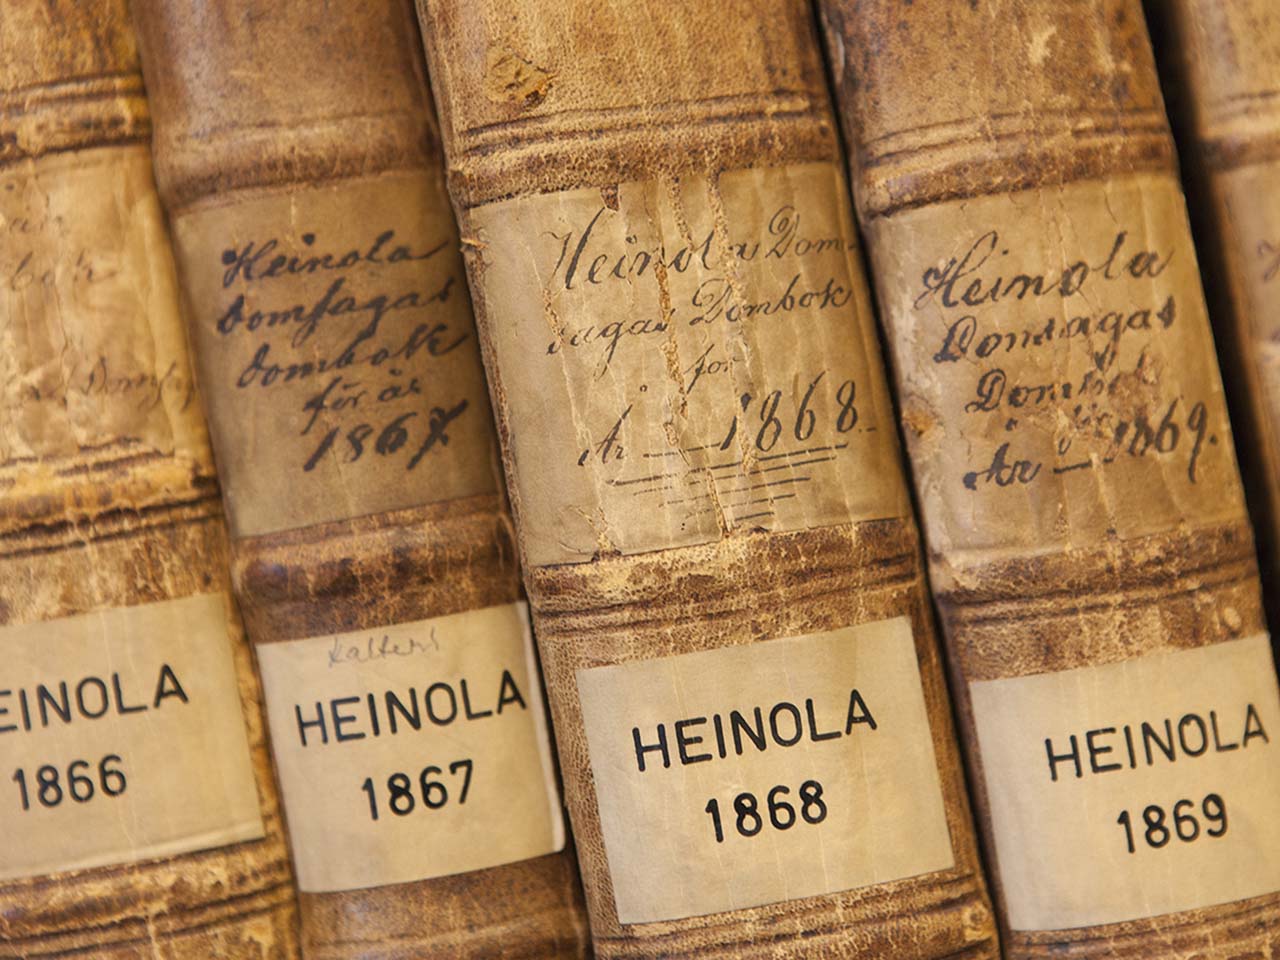 EINOLA
1866
Heinola
domsagas
dombok
för år
1867
Kalteri
HEINOLA
1867
Heinola Dom-
sagas Dombok
för
År 1868.
HEINOLA
1868
Heinola
Domsagas
Dombok
för
År 1869.
HEINOLA
1869